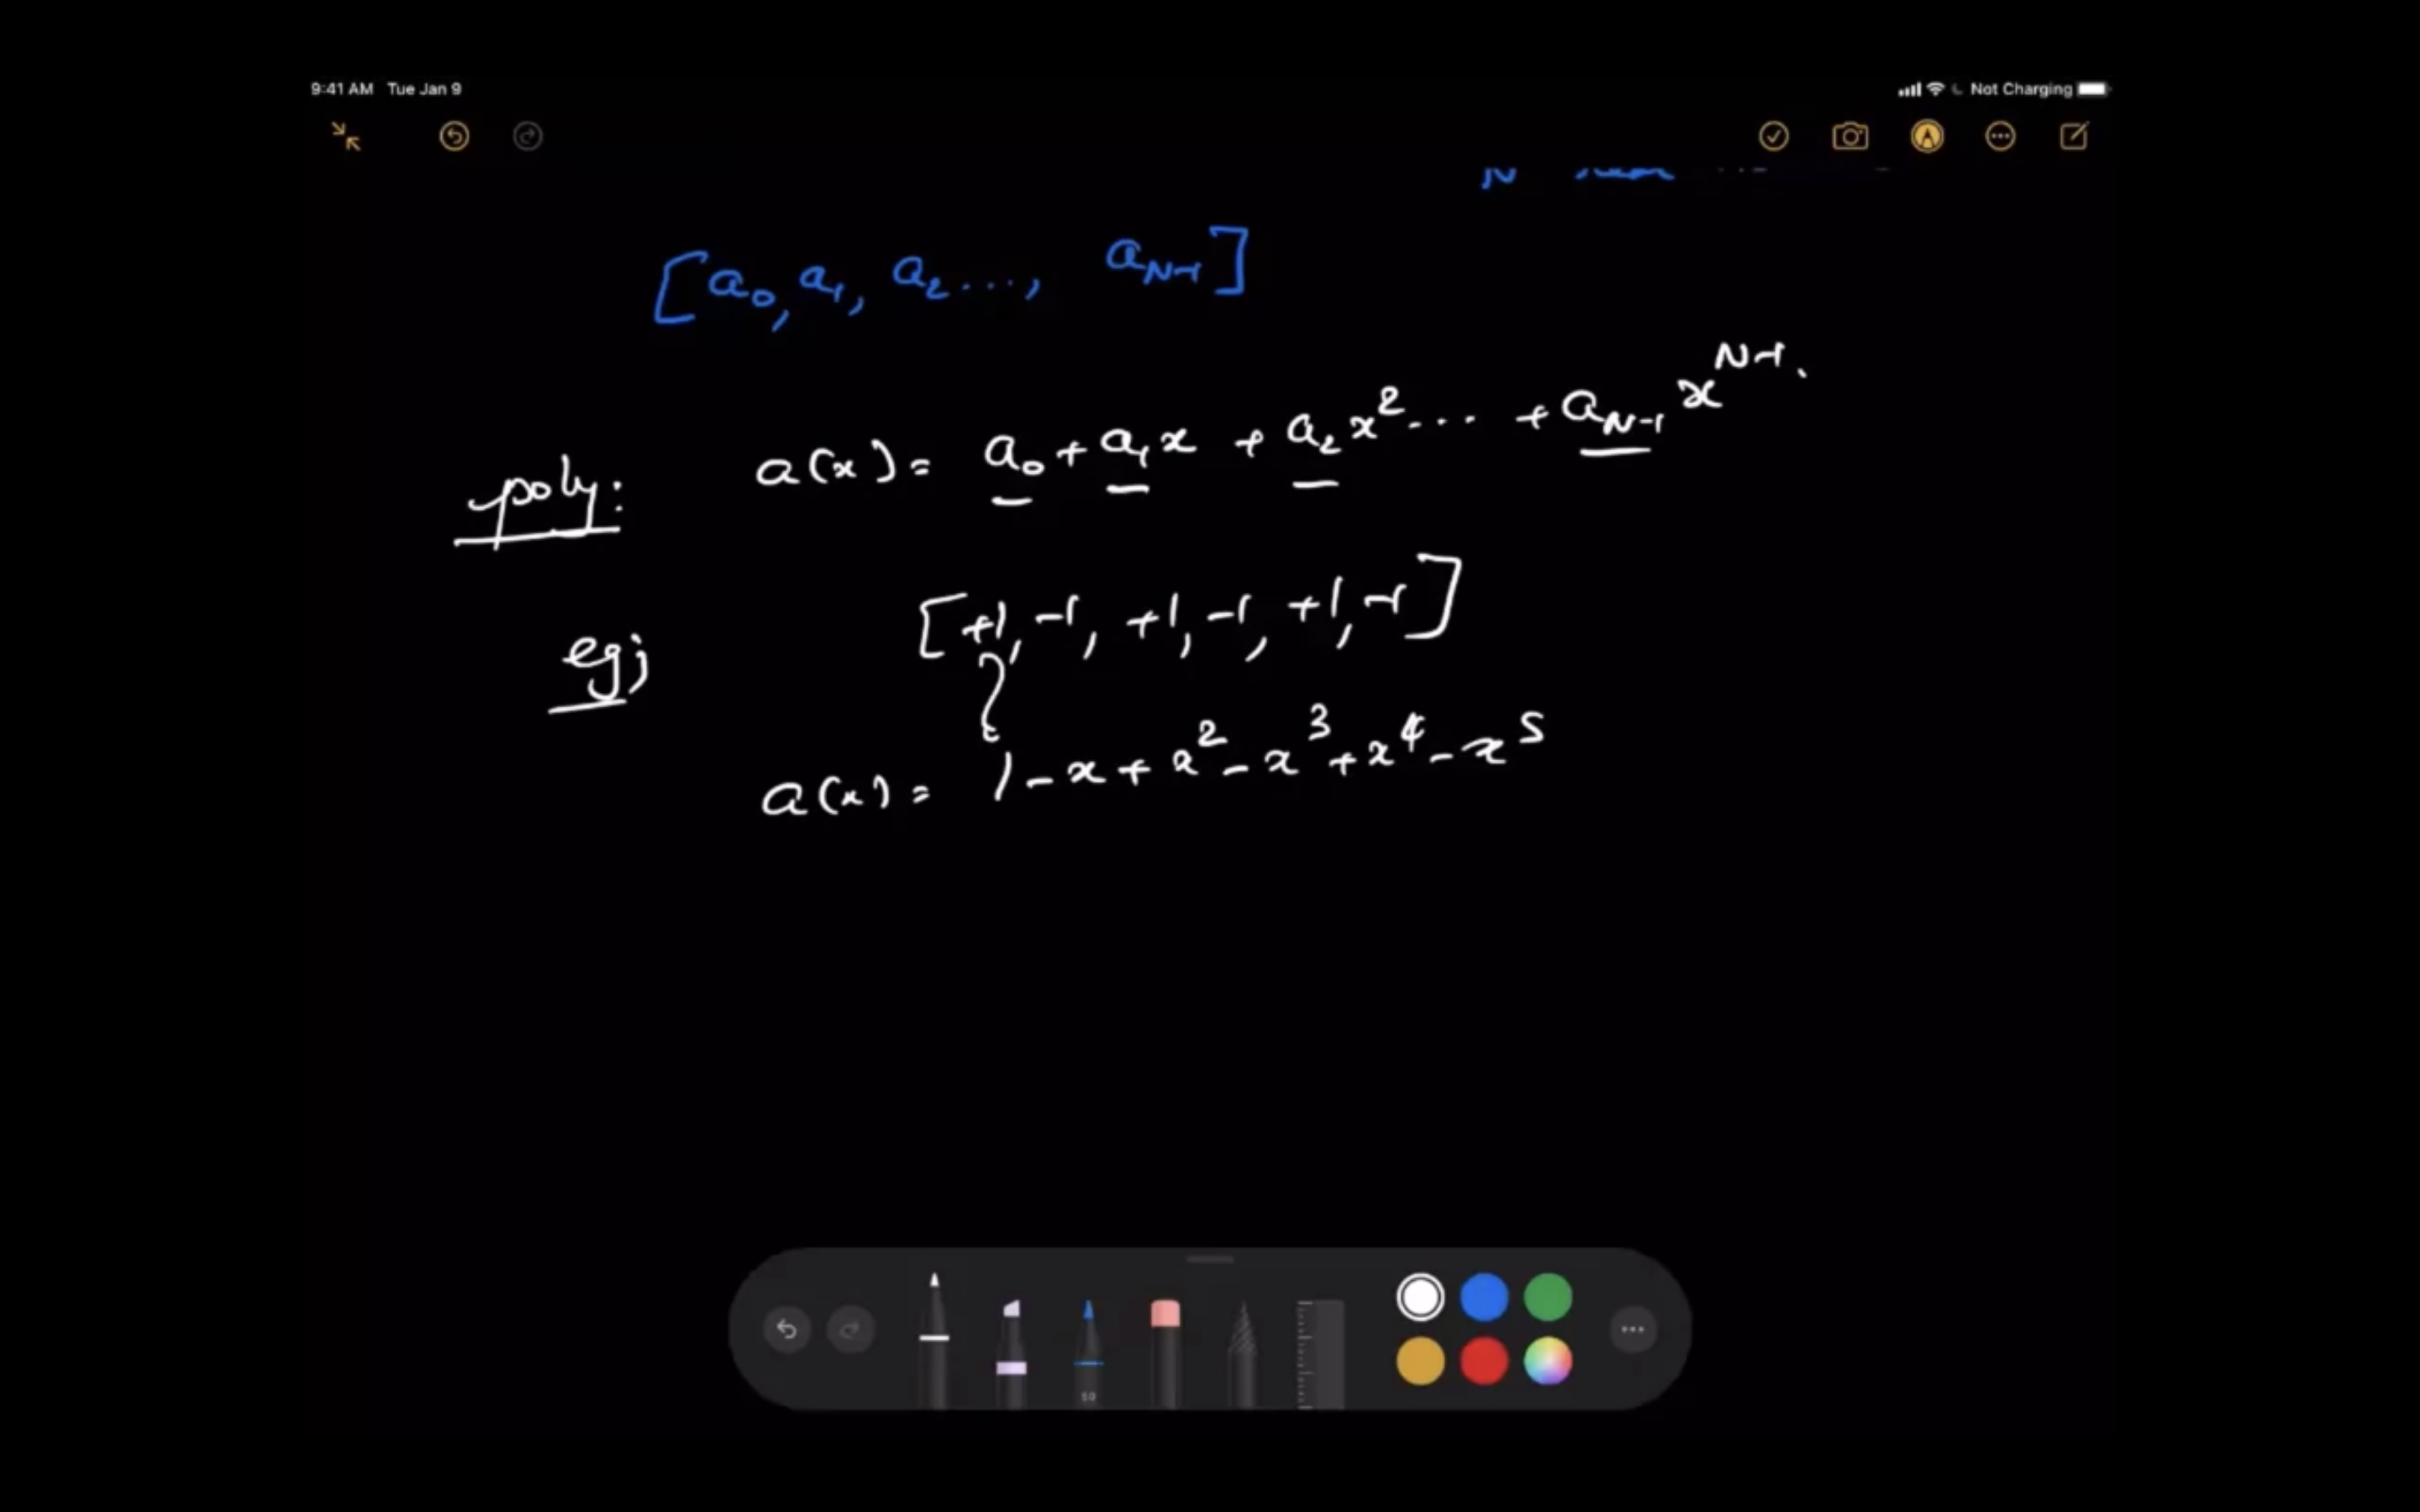 9:41 AM Tue Jan 9 Not Charging
[a₀, a₁, a₂ ..., a_{N-1}]
poly: a(x) = a₀ + a₁x + a₂x² ... + a_{N-1} x^{N-1}.
eg; [+1, -1, +1, -1, +1, -1]
a(x) = 1 - x + x² - x³ + x⁴ - x⁵
50